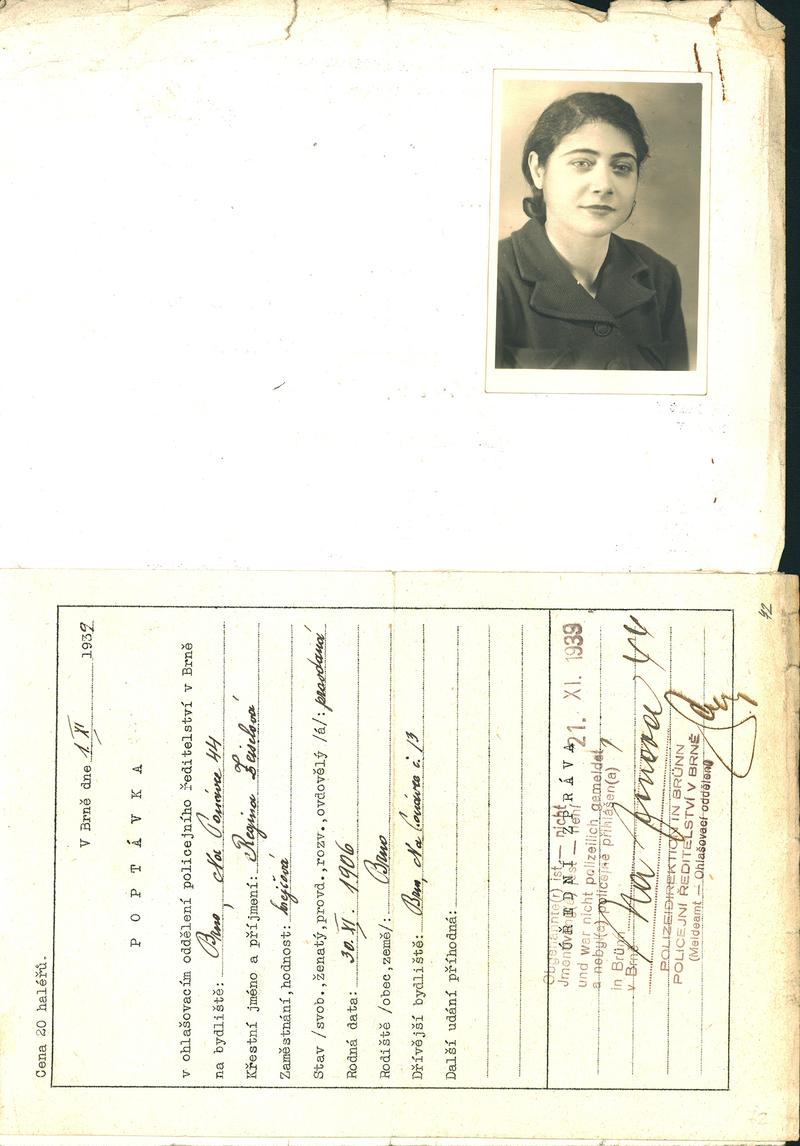 Cena 20 haléřů.
V Brně dne 1. XI 1939
P O P T Á V K A
v ohlašovacím oddělení policejního ředitelství v Brně
na bydliště: Brno, Na Ponávce 44
Křestní jméno a příjmení: Regina
Zaměstnání,hodnost:
Stav /svob.,ženatý,provd.,rozv.,ovdovělý /á/: provdaná
Rodná data: 30. XI. 1906
Rodiště /obec,země/: Brno
Dřívější bydliště: Brno, Na Ponávce č. 13
Další udání příhodná:
ÚŘEDNÍ ZPRÁVA
21. XI. 1939
Obgenannte(r) ist — nicht
Jmenovaný(á) jest — není
und war nicht polizeilich gemeldet
a neby(a) policejně přihlášen(a)
in Brünn
v Brně
44
POLIZEIDIREKTION IN BRÜNN
POLICEJNÍ ŘEDITELSTVÍ V BRNĚ
(Meldeamt — Ohlašovací oddělení)
42